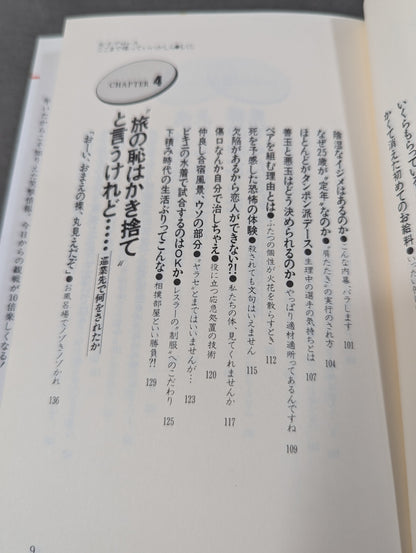 いくらもらえ
かして消えた初めてのお給料●
陰湿なイジメはあるのか●こんな内幕、バラします 101
なぜ25歳が“定年”なのか●“肩たたき”の実行のされ方 104
ほとんどがタンポン派デース●生理中の選手の気持ちとは 107
善玉と悪玉はどう決められるのか●やっぱり適材適所ってあるんですね 109
ペアを組む理由とは●ふたつの個性が火花を散らすとき 112
死を予感した恐怖の体験●殺されても文句はいえません 115
欠陥があるから恋人ができない?!●私たちの体、見てくれませんか 117
傷口なんか自分で治しちゃえ●役に立つ応急処置の技術 120
仲良し合宿風景、ウソの部分●“ヤラセ”とまではいいませんが… 123
ビキニの水着で試合するのはOKか●レスラーの“制服”へのこだわり 125
下積み時代の生活ぶりってこんな●相撲部屋といい勝負?! 129
CHAPTER 4
“旅の恥はかき捨て”
と言うけれど……
巡業先で何をされたか
“おーい、おまえの裸、丸見えだぞ”●お風呂場でノゾきノゾかれ 136
9